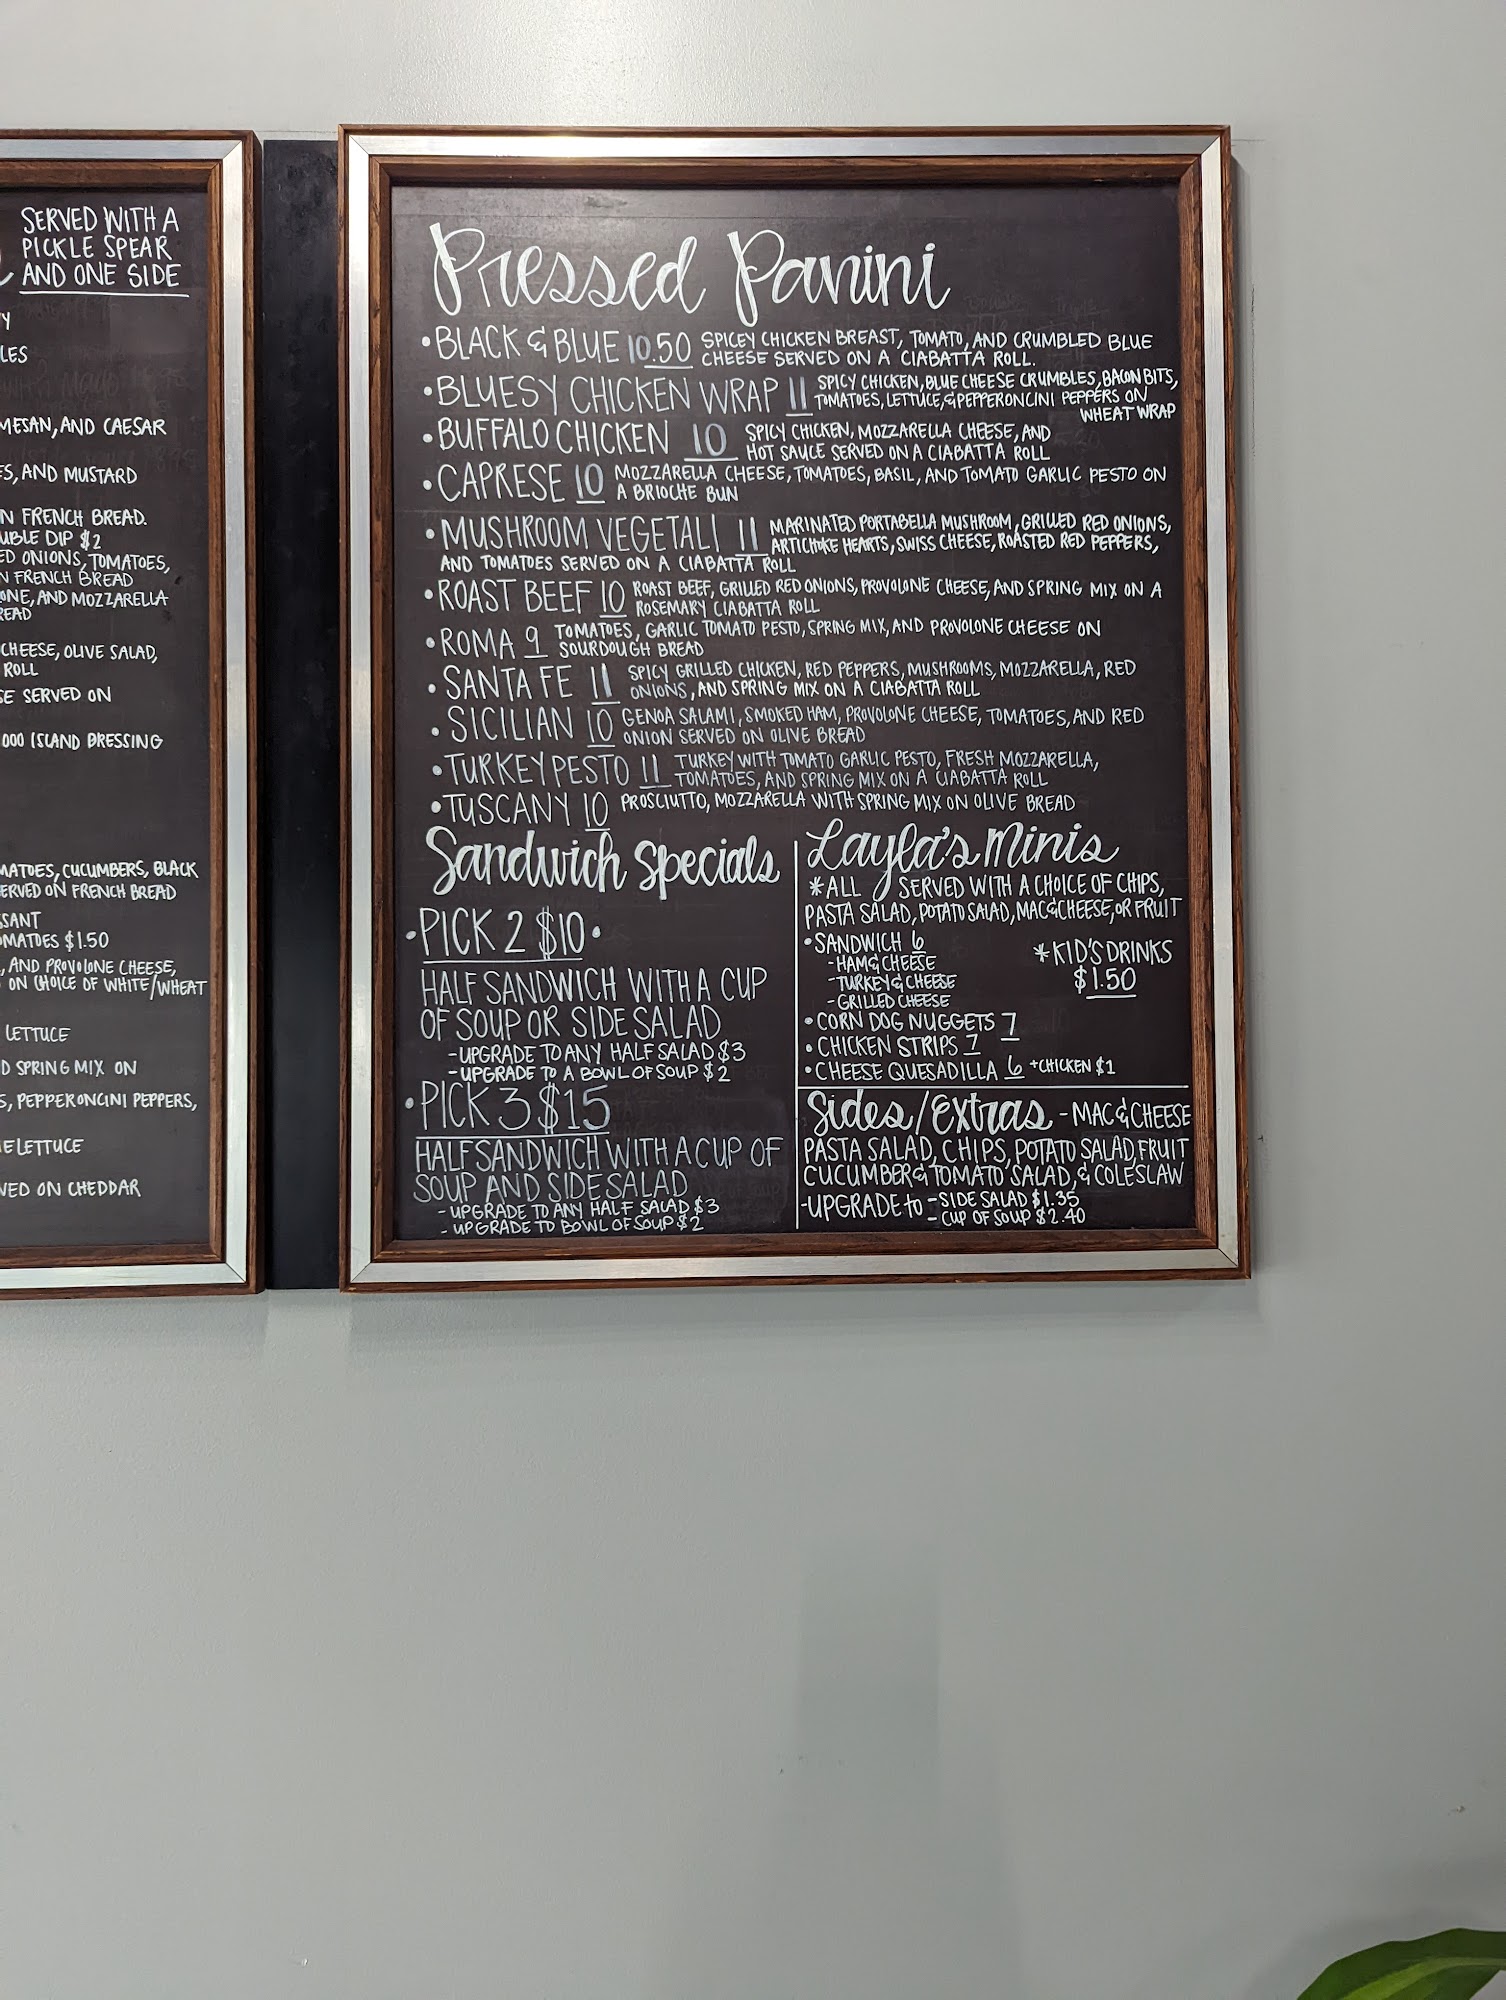 SERVED WITH A
PICKLE SPEAR
AND ONE SIDE
Y
LES
MESAN, AND CAESAR
S, AND MUSTARD
N FRENCH BREAD.
UBLE DIP $2
ED ONIONS, TOMATOES,
N FRENCH BREAD
ONE, AND MOZZARELLA
READ
CHEESE, OLIVE SALAD,
ROLL
SE SERVED ON
000 ISLAND DRESSING
MATOES, CUCUMBERS, BLACK
ERVED ON FRENCH BREAD
SSANT
OMATOES $1.50
, AND PROVOLONE CHEESE,
ON CHOICE OF WHITE/WHEAT
LETTUCE
D SPRING MIX ON
S, PEPPERONCINI PEPPERS,
E LETTUCE
VED ON CHEDDAR
Pressed Panini
• BLACK & BLUE 10.50 SPICEY CHICKEN BREAST, TOMATO, AND CRUMBLED BLUE
CHEESE SERVED ON A CIABATTA ROLL.
• BLUESY CHICKEN WRAP 11 SPICY CHICKEN, BLUE CHEESE CRUMBLES, BACON BITS,
TOMATOES, LETTUCE, & PEPPERONCINI PEPPERS ON
WHEAT WRAP
• BUFFALO CHICKEN 10 SPICY CHICKEN, MOZZARELLA CHEESE, AND
HOT SAUCE SERVED ON A CIABATTA ROLL
• CAPRESE 10 MOZZARELLA CHEESE, TOMATOES, BASIL, AND TOMATO GARLIC PESTO ON
A BRIOCHE BUN
• MUSHROOM VEGETALI 11 MARINATED PORTABELLA MUSHROOM, GRILLED RED ONIONS,
ARTICHOKE HEARTS, SWISS CHEESE, ROASTED RED PEPPERS,
AND TOMATOES SERVED ON A CIABATTA ROLL
• ROAST BEEF 10 ROAST BEEF, GRILLED RED ONIONS, PROVOLONE CHEESE, AND SPRING MIX ON A
ROSEMARY CIABATTA ROLL
• ROMA 9 TOMATOES, GARLIC TOMATO PESTO, SPRING MIX, AND PROVOLONE CHEESE ON
SOURDOUGH BREAD
• SANTA FE 11 SPICY GRILLED CHICKEN, RED PEPPERS, MUSHROOMS, MOZZARELLA, RED
ONIONS, AND SPRING MIX ON A CIABATTA ROLL
• SICILIAN 10 GENOA SALAMI, SMOKED HAM, PROVOLONE CHEESE, TOMATOES, AND RED
ONION SERVED ON OLIVE BREAD
• TURKEY PESTO 11 TURKEY WITH TOMATO GARLIC PESTO, FRESH MOZZARELLA,
TOMATOES, AND SPRING MIX ON A CIABATTA ROLL
• TUSCANY 10 PROSCIUTTO, MOZZARELLA WITH SPRING MIX ON OLIVE BREAD
Sandwich Specials
• PICK 2 $10 •
HALF SANDWICH WITH A CUP
OF SOUP OR SIDE SALAD
- UPGRADE TO ANY HALF SALAD $3
- UPGRADE TO A BOWL OF SOUP $2
• PICK 3 $15
HALF SANDWICH WITH A CUP OF
SOUP AND SIDE SALAD
- UPGRADE TO ANY HALF SALAD $3
- UPGRADE TO BOWL OF SOUP $2
Layla's Minis
*ALL SERVED WITH A CHOICE OF CHIPS,
PASTA SALAD, POTATO SALAD, MAC&CHEESE, OR FRUIT
• SANDWICH 6
- HAM & CHEESE
- TURKEY & CHEESE
- GRILLED CHEESE
*KID'S DRINKS
$1.50
• CORN DOG NUGGETS 7
• CHICKEN STRIPS 7
• CHEESE QUESADILLA 6 +CHICKEN $1
Sides/Extras - MAC & CHEESE
PASTA SALAD, CHIPS, POTATO SALAD, FRUIT
CUCUMBER & TOMATO SALAD, & COLESLAW
- UPGRADE to - SIDE SALAD $1.35
- CUP OF SOUP $2.40